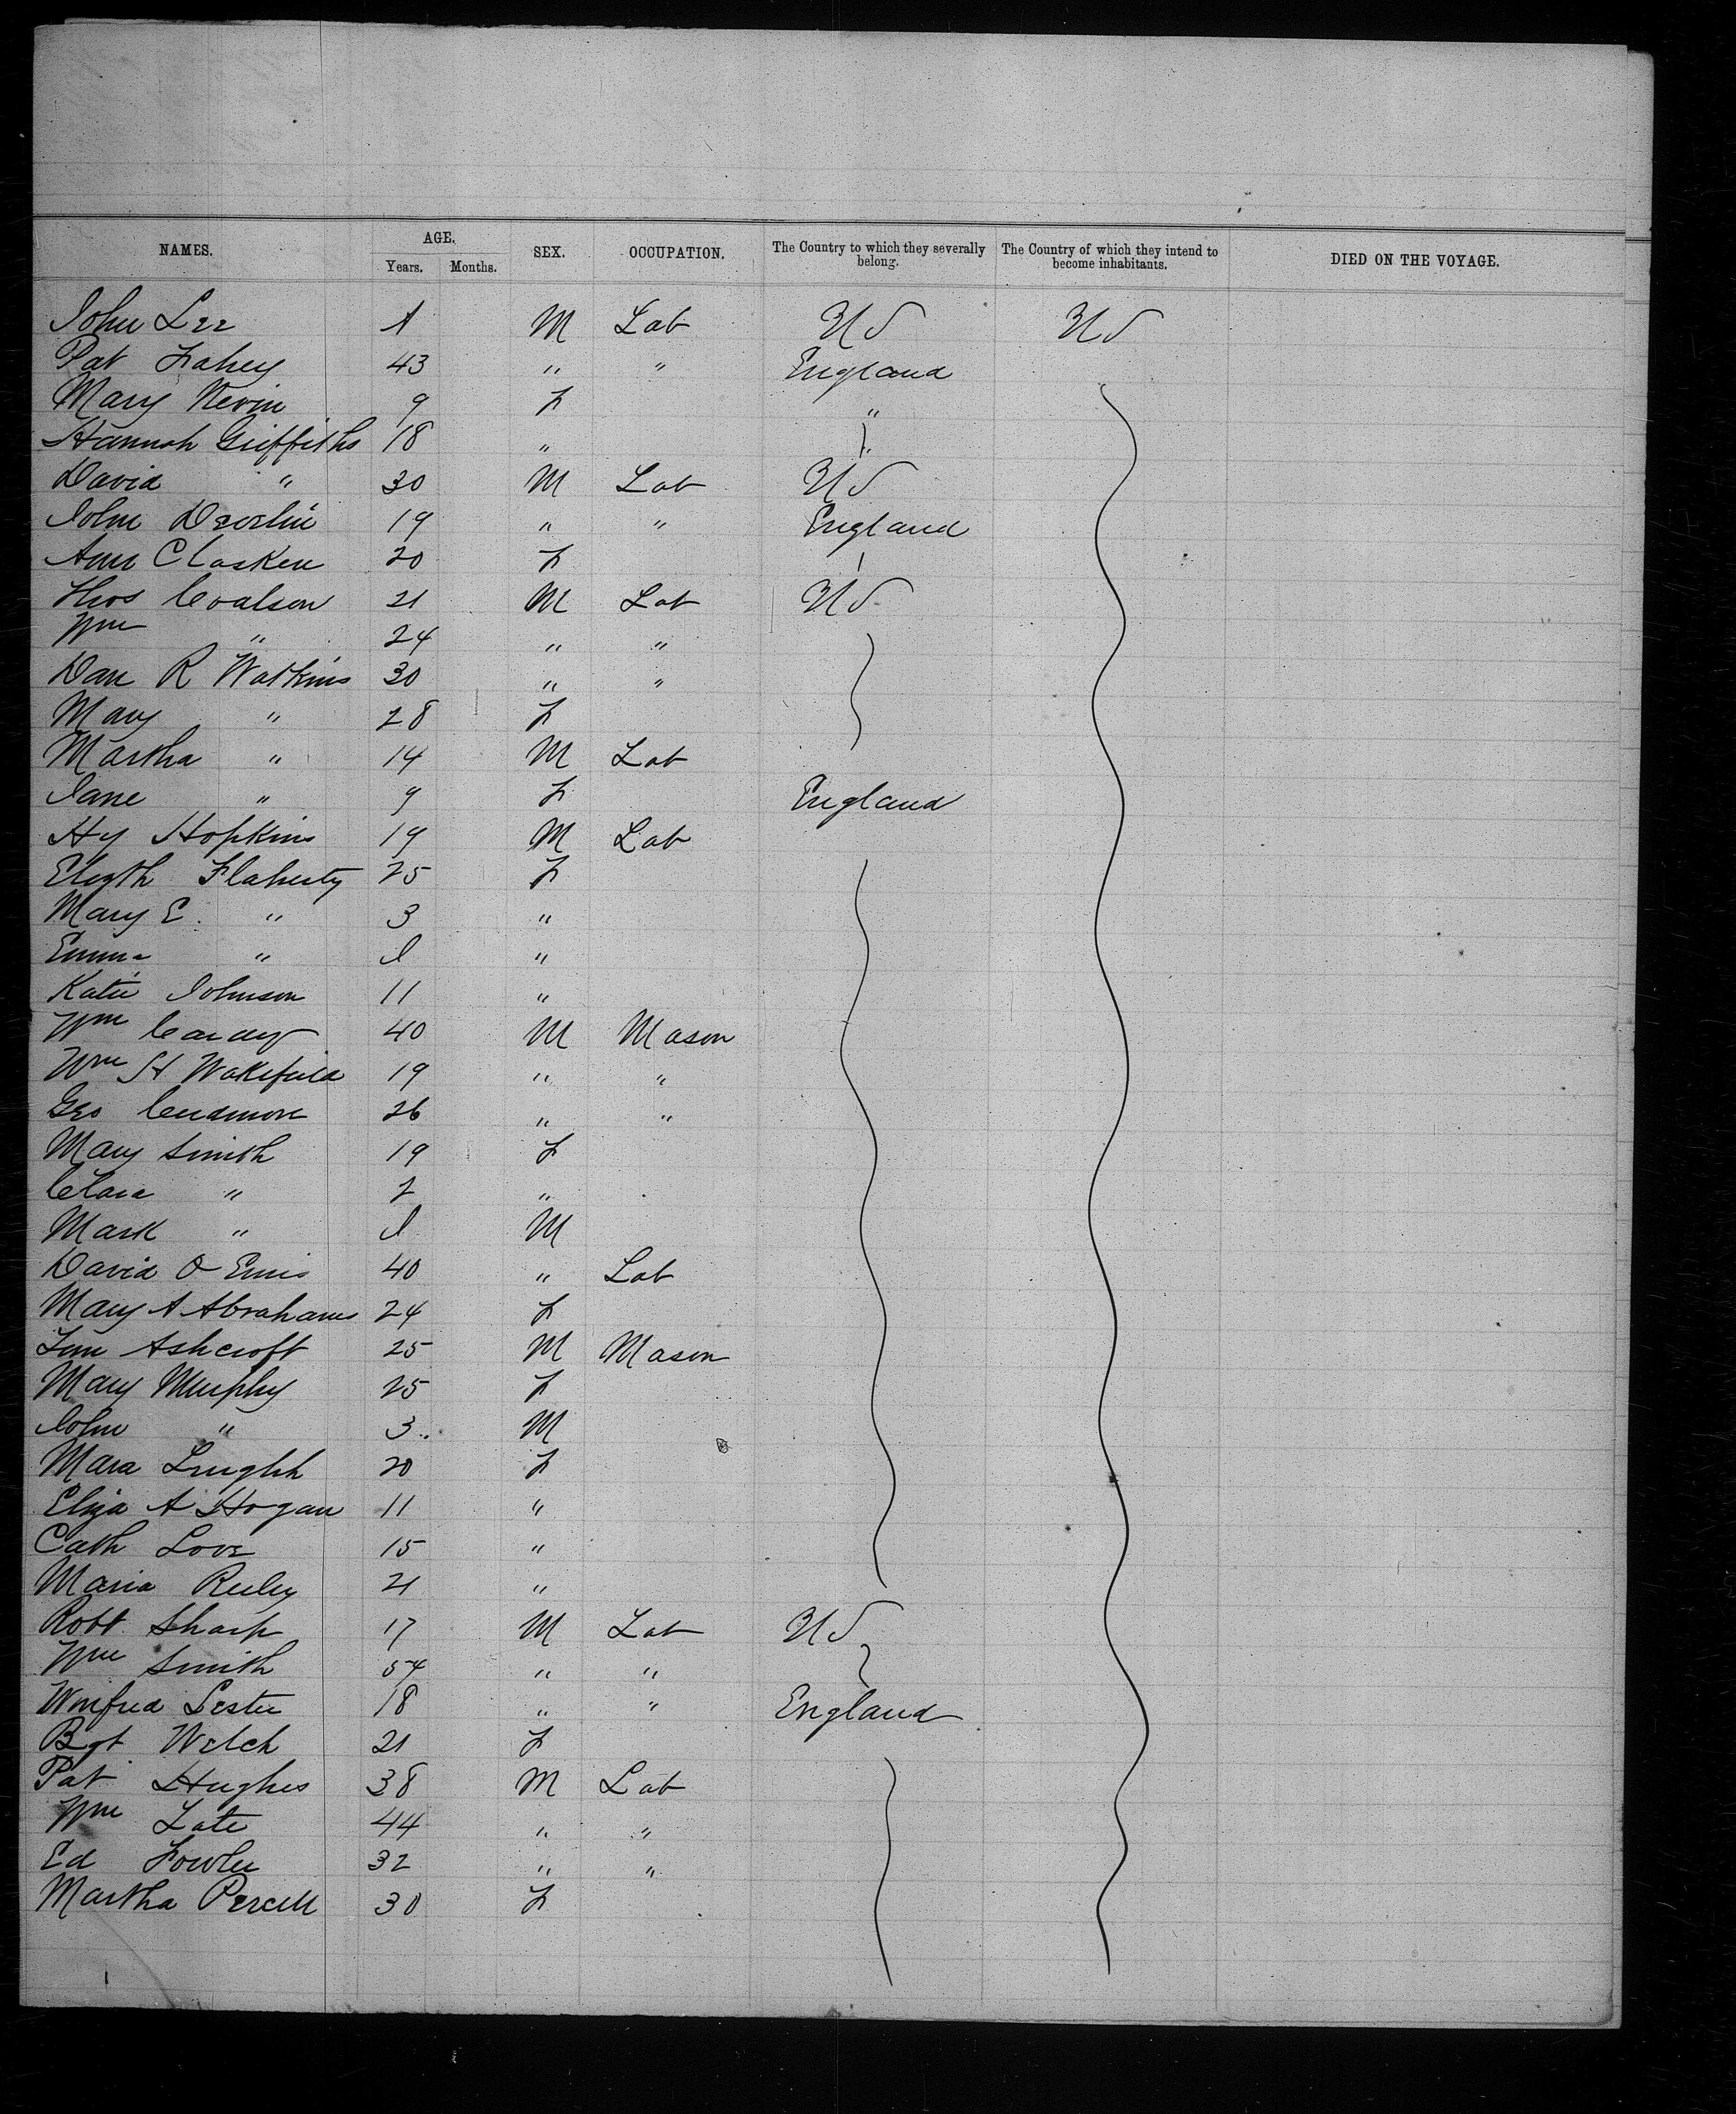 NAMES. AGE. SEX. OCCUPATION. The Country to which they severally belong. The Country of which they intend to become inhabitants. DIED ON THE VOYAGE.
Years. Months.
John Lee M Lab US US
Pat Fahey 43 " " England
Mary Nevin 9 F "
Hannah Griffiths 18 " "
David " 30 M Lab US
John Devlin 19 " " England
Ann Clasken 20 F
Thos Coalson 21 M Lab US
Wm " 24 " "
Dan R Watkins 30 " "
Mary " 28 F
Martha " 14 M Lab
Jane " 9 F England
Hy Hopkins 19 M Lab
Elizth Flaherty 25 F
Mary E. " 3 "
Emma " "
Katie Johnson 11 "
Wm 40 M Mason
Wm H Wakefield 19 " "
Geo Cudmore 26 " "
Mary Smith 19 F
Clara " 2 "
Mark " M
David O 40 " Lab
Mary A Abrahams 24 F
Ashcroft 25 M Mason
Mary Murphy 25 F
John " 3 M
Mara 20 F
Eliza A Hogan 11 "
Cath Love 15 "
Maria Reiley 21 "
Robt Sharp 17 M Lab US
Wm Smith 54 " "
Winfred Lester 18 " " England
Bgt Welch 21 F
Pat Hughes 38 M Lab
Wm 44 " "
Ed Fowler 32 " "
Martha Percell 30 F